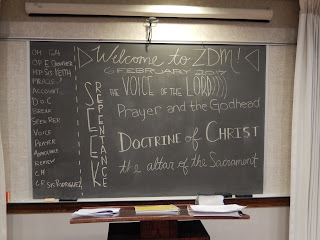 OH
OP E
HP Sis Keith
Account.
D.o.C.
Break
Seek Rep
Voice
Prayer
CH
CP Sis Rodriguez
Welcome to ZDM!
6 FEBRUARY 2017
SEEK
REPENTANCE
THE VOICE OF THE LORD))))
Prayer and the Godhead
DOCTRINE OF CHRIST
the altar of the Sacrament